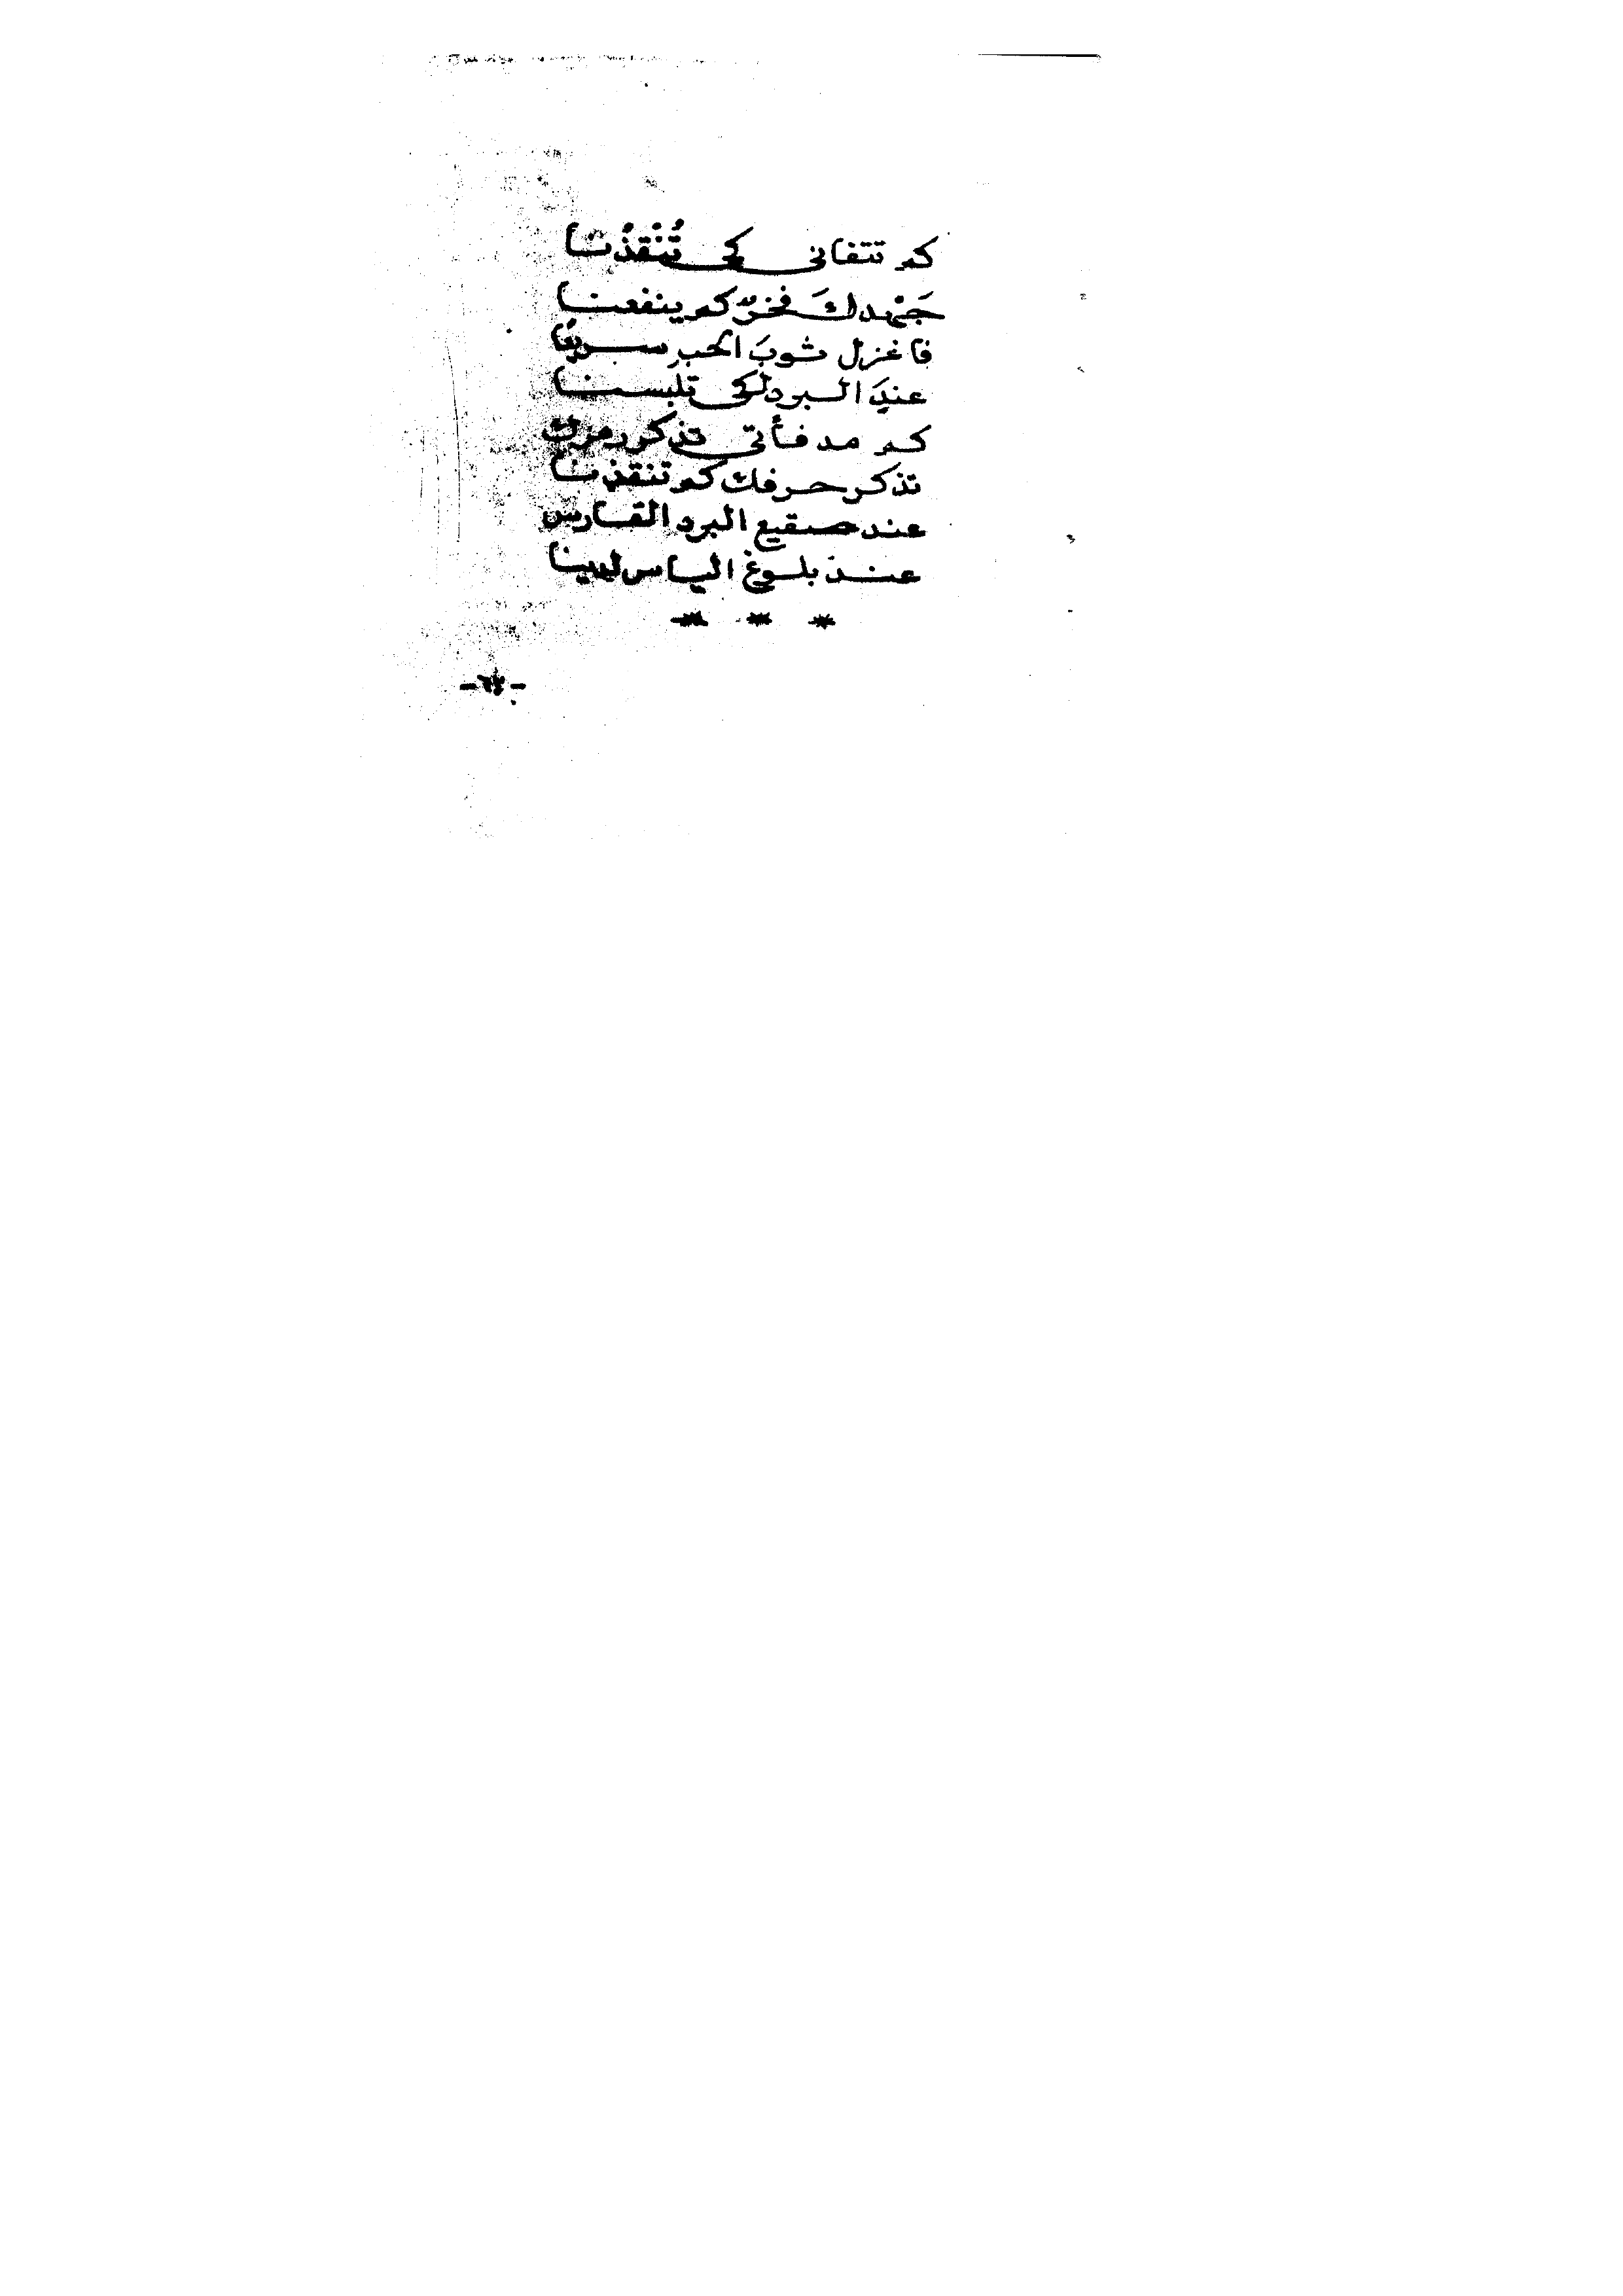 كم تتفانى كي تُنْقذُنا
جَهْدكَ فخرٌ كم ينفعنا
فاغزل ثوبَ الحبر سريعًا
عندَ البرد لكي تلبسنا
كم مدفأتي تذكر رمزك
تذكر حرفك كم تنقذنا
عند صقيع البرد القارس
عند بلوغ الياس لدينا
* * *